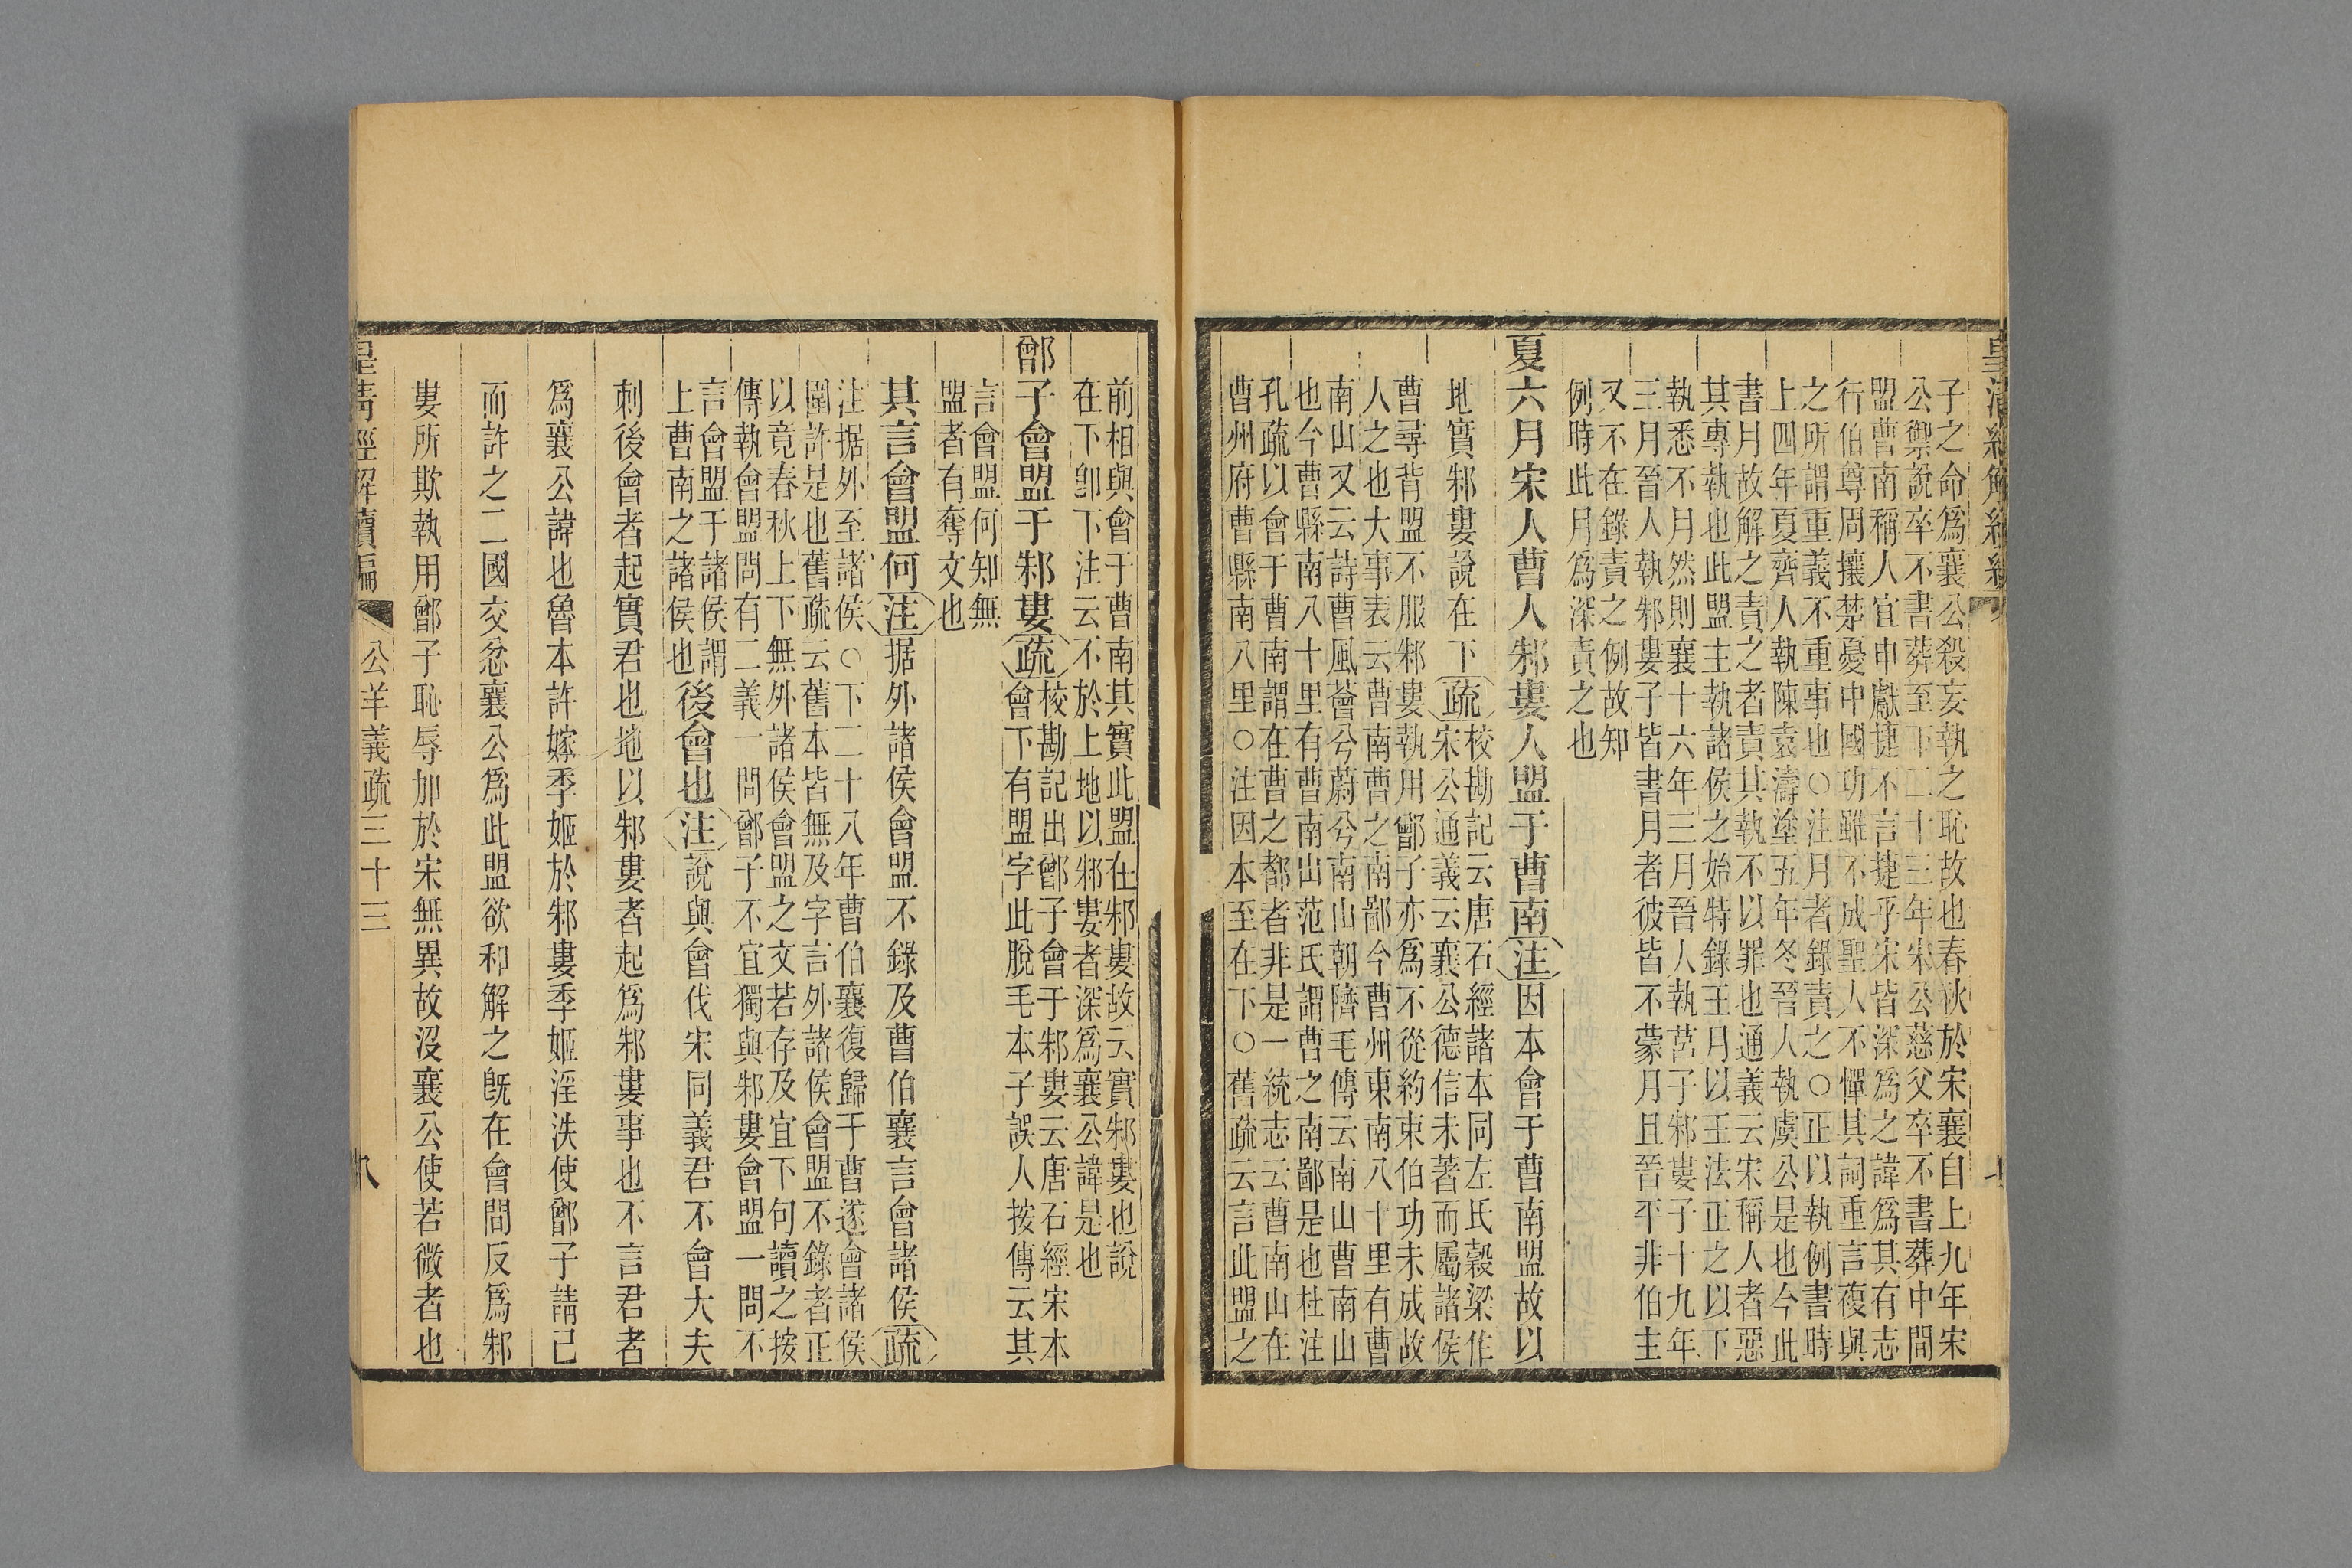 子之命爲襄公殺妄執之恥故也春秋於宋襄自上九年宋
公禦說卒不書葬至下二十三年宋公慈父卒不書葬中間
盟曹南稱人宜申獻捷不言捷乎宋皆深爲之諱爲其有志
行伯尊周攘楚憂中國功雖不成聖人不憚其詞重言複與
之所謂重義不重事也○注月者錄責之○正以執例書時
上四年夏齊人執陳袁濤塗五年冬晉人執虞公是也今此
書月故解之責之者責其執不以罪也通義云宋稱人者惡
其專執也此盟主執諸侯之始特錄王月以王法正之以下
執悉不月然則襄十六年三月晉人執莒子邾婁子十九年
三月晉人執邾婁子皆書月者彼皆不蒙月且晉平非伯主
又不在錄責之例故知
例時此月爲深責之也
夏六月宋人曹人邾婁人盟于曹南注因本會于曹南盟故以
地實邾婁說在下疏
校勘記云唐石經諸本同左氏穀梁作
宋公通義云襄公德信未著而屬諸侯
曹尋背盟不服邾婁執用鄫子亦爲不從約束伯功未成故
人之也大事表云曹南曹之南鄙今曹州東南八十里有曹
南山又云詩曹風薈兮蔚兮南山朝隮毛傳云南山曹南山
也今曹縣南八十里有曹南山范氏謂曹之南鄙是也杜注
孔疏以會于曹南謂在曹之都者非是一統志云曹南山在
曹州府曹縣南八里○注因本至在下○舊疏云言此盟之
前相與會于曹南其實此盟在邾婁故云實邾婁也說
在下卽下注云不於上地以邾婁者深爲襄公諱是也
鄫子會盟于邾婁疏
校勘記出鄫子會于邾婁云唐石經宋本
會下有盟字此脫毛本子誤人按傳云其
言會盟何知無
盟者有奪文也
其言會盟何注据外諸侯會盟不錄及曹伯襄言會諸侯疏
注据外至諸侯○下二十八年曹伯襄復歸于曹遂會諸侯
圍許是也舊疏云舊本皆無及字言外諸侯會盟不錄者正
以竟春秋上下無外諸侯會盟之文若存及宜下句讀之按
傳執會盟問有二義一問鄫子不宜獨與邾婁會盟一問不
言會盟于諸侯謂
上曹南之諸侯也
後會也注說與會伐宋同義君不會大夫
刺後會者起實君也地以邾婁者起爲邾婁事也不言君者
爲襄公諱也魯本許嫁季姬於邾婁季姬淫泆使鄫子請已
而許之二國交忿襄公爲此盟欲和解之旣在會間反爲邾
婁所欺執用鄫子恥辱加於宋無異故沒襄公使若微者也
皇淸經解續編
公羊義疏三十三
八